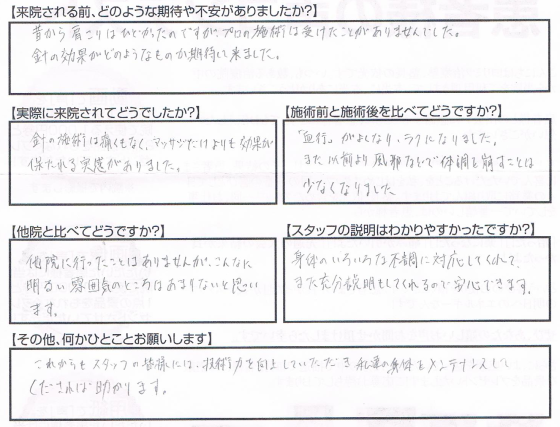 【来院される前、どのような期待や不安がありましたか?】
昔から肩こりはひどかったのですが、プロの施術は受けたことがありませんでした。
針の効果がどのようなものか期待して来ました。
【実際に来院されてどうでしたか?】
針の施術は痛くもなく、マッサージだけよりも効果が
保たれる実感がありました。
【施術前と施術後を比べてどうですか?】
「血行」がよくなり、ラクになりました。
また以前より風邪などで体調を崩すことは
少なくなりました
【他院と比べてどうですか?】
他院に行ったことはありませんが、こんなに
明るい雰囲気のところはあまりないと思い
ます。
【スタッフの説明はわかりやすかったですか?】
身体のいろいろな不調に対応してくれて、
また充分説明もしてくれるので安心できます。
【その他、何かひとことお願いします】
これからもスタッフの皆様には、技術力を向上していただき私達の身体をメンテナンスして
くだされば助かります。